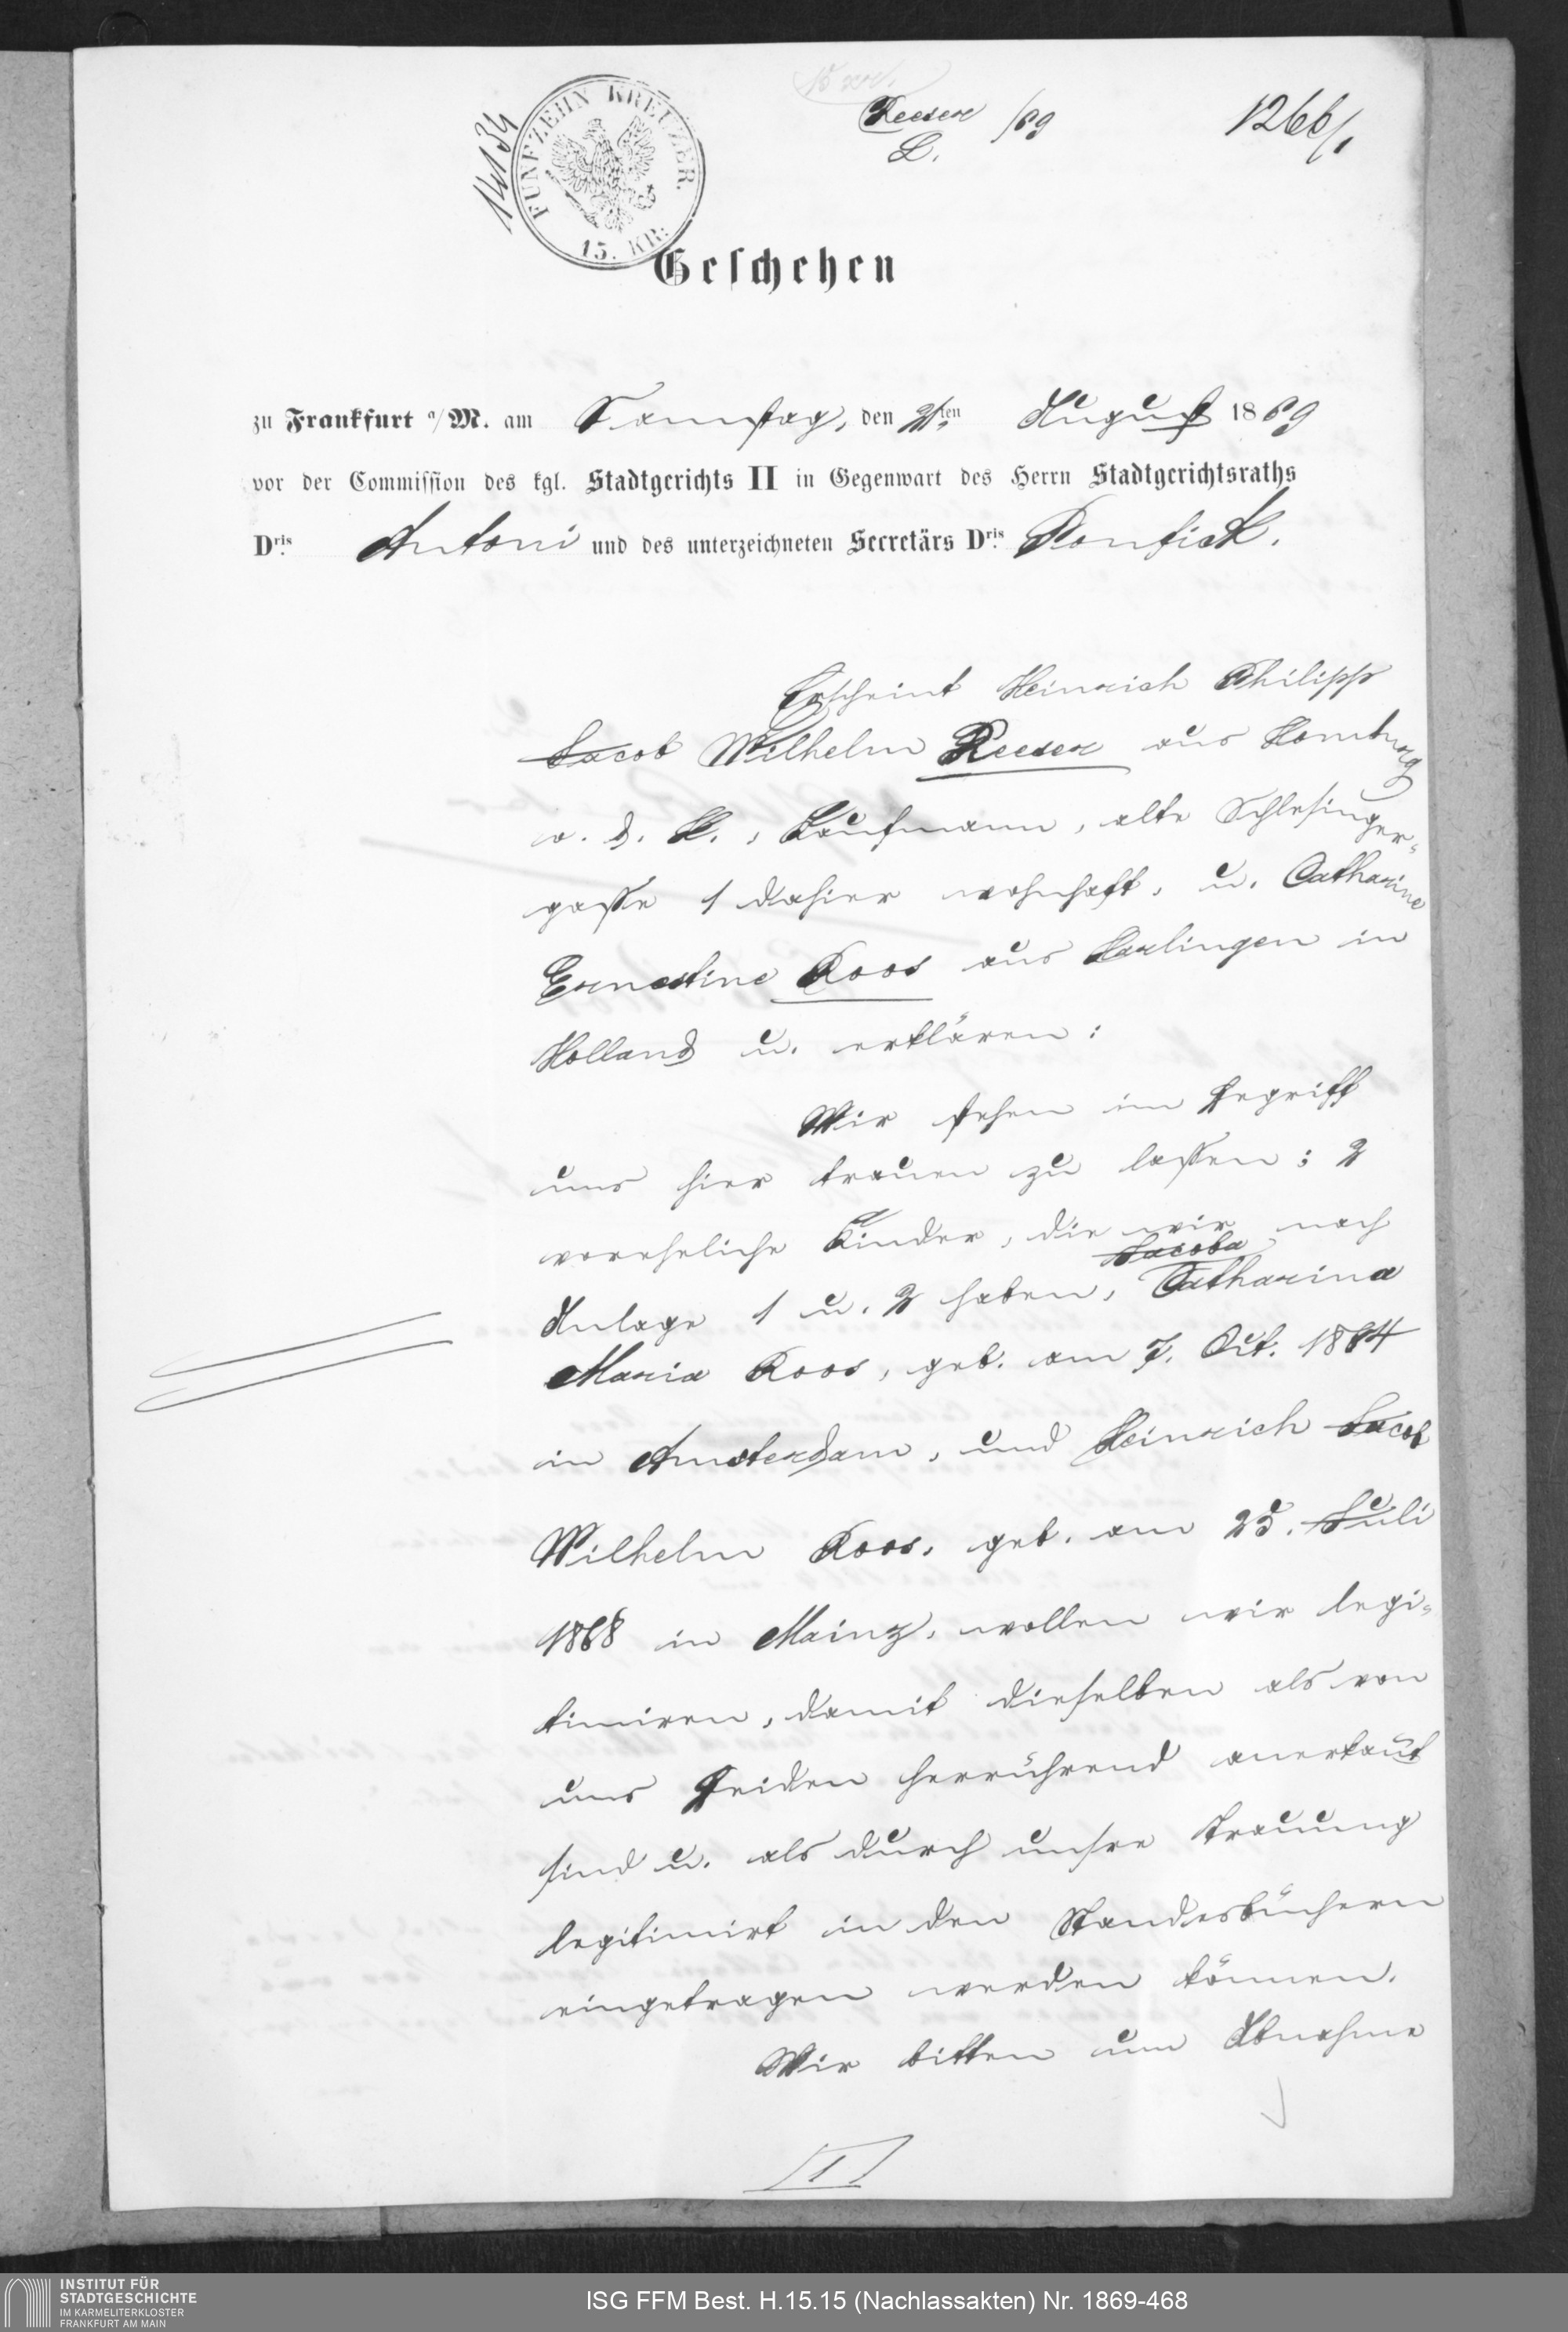 Reeser /69
L.
1266/1
14134
FUNFZEHN KREUZER.
15. KR:
Geschehen
zu Frankfurt a/M. am Samstag, den 21ten August 1869
vor der Commission des kgl. Stadtgerichts II in Gegenwart des Herrn Stadtgerichtsraths
Dris. Antoni und des unterzeichneten Secretärs Dris. Ponfick.
Erscheint Heinrich Philipp
Jacob Wilhelm Reeser aus Homburg
v. d. H., Kaufmann, alte Schlesinger-
gasse 1 dahier wohnhaft, u. Catharine
Ernestine Roos aus Harlingen in
Holland u. erklären:
Wir stehen im Begriff
uns hier trauen zu lassen; 2
voreheliche Kinder, die wir nach
Jacoba
Anlage 1 u. 2 haben, Catharina
Maria Roos, geb. am 7. Oct. 1864
in Amsterdam, und Heinrich Jacob
Wilhelm Roos, geb. am 25. Juli
1868 in Mainz, wollen wir legi-
timiren, damit dieselben als von
uns Beiden herrührend anerkan̄t
sind u. als durch unsre Trauung
legitimirt in den Standesbüchern
eingetragen werden können.
Wir bitten um Abnahme
1
INSTITUT FÜR
STADTGESCHICHTE
IM KARMELITERKLOSTER
FRANKFURT AM MAIN
ISG FFM Best. H.15.15 (Nachlassakten) Nr. 1869-468